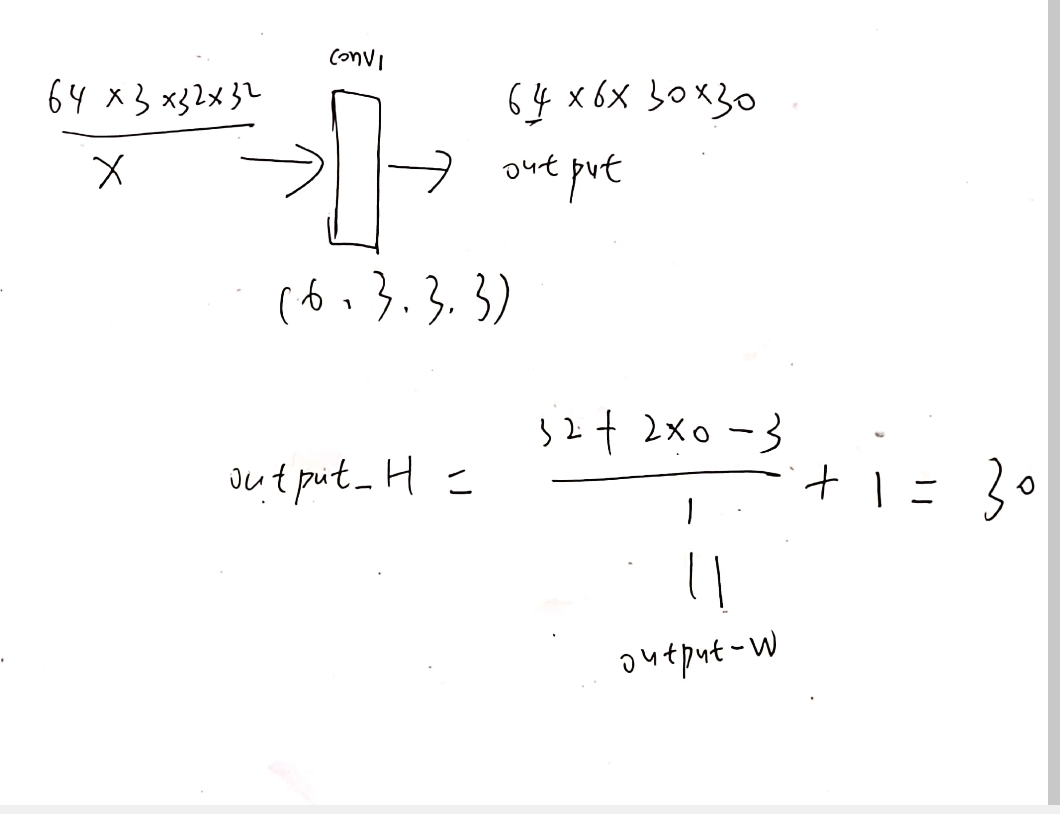 conv1
64 × 3 × 32 × 32
64 × 6 × 30 × 30
X
output
(6, 3, 3, 3)
output_H = (32 + 2×0 - 3) / 1 + 1 = 30
||
output-W